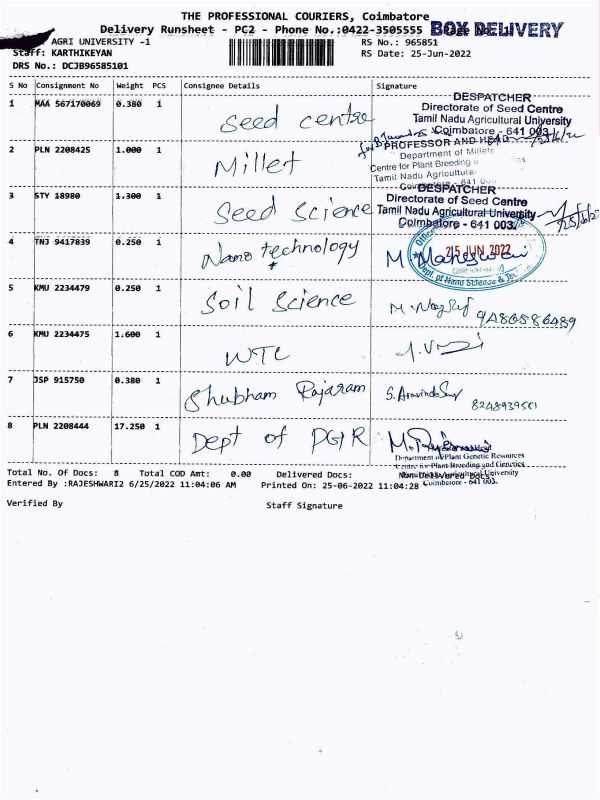 THE PROFESSIONAL COURIERS, Coimbatore
Delivery Runsheet - PC2 - Phone No.:0422-3505555 BOX DELIVERY
AGRI UNIVERSITY -1 RS No.: 965851
Staff: KARTHIKEYAN RS Date: 25-Jun-2022
DRS No.: DCJB96585101
S No Consignment No Weight PCS Consignee Details Signature
1 MAA 567170069 0.380 1 Seed centre
DESPATCHER
Directorate of Seed Centre
Tamil Nadu Agricultural University
Coimbatore - 641 003
2 PLN 2208425 1.000 1 Millet
PROFESSOR AND HEAD
Department of Millets
Centre for Plant Breeding
Tamil Nadu Agricultural
3 STY 18980 1.300 1 Seed Science
DESPATCHER
Directorate of Seed Centre
Tamil Nadu Agricultural University
Coimbatore - 641 003.
4 TNJ 9417839 0.250 1 Nano technology M. Maheswari
25 JUN 2022
Dept of Nano Science & Tec
5 KMU 2234479 0.250 1 Soil Science
6 KMU 2234475 1.600 1 WTC
7 JSP 915750 0.380 1 Shubham Rajaram
8 PLN 2208444 17.250 1 Dept of PGR
Department of Plant Genetic Resources
Centre for Plant Breeding and Genetics
Total No. Of Docs: 8 Total COD Amt: 0.00 Delivered Docs: Non-Delivered Docs:
Entered By :RAJESHWARI2 6/25/2022 11:04:06 AM Printed On: 25-06-2022 11:04:28
Coimbatore - 641 003.
Verified By Staff Signature